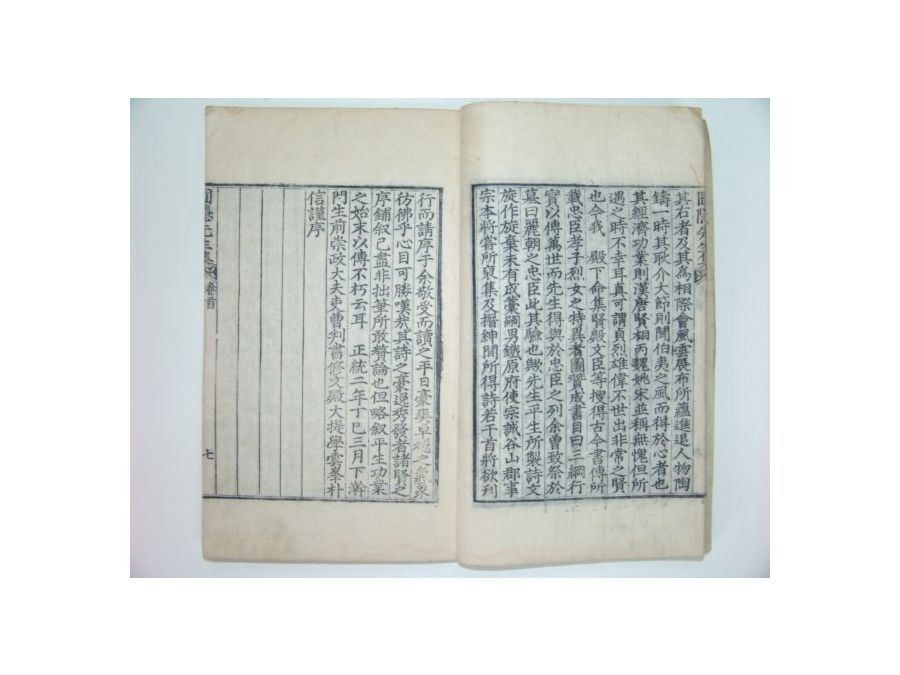 其右者及其爲相際會風雲展布所蘊進退人物陶
鑄一時其耿介大節則聞伯夷之風而得於心者也
其經濟功業則漢唐賢相丙魏姚宋並稱無愧但所
遇之時不幸耳真可謂貞烈雄偉不世出非常之賢
也今我 殿下命集賢殿文臣等搜得古今書傳所
載忠臣孝子烈女之特異者圖贊成書目曰三綱行
實以傳萬世而先生得與於忠臣之列余曾致祭於
墓曰麗朝之忠臣此其驗也歟先生平生所製詩文
旋作旋棄未有成藁嗣男鐵原府使宗誠谷山郡事
宗本將嘗所裒集及搢紳間所得詩若干首將欲刋
行而請序于余敬受而讀之平日豪爽卓越之氣象
彷彿乎心目可勝嘆哉其詩之豪逸秀發者諸賢之
序鋪叙已盡非拙筆所敢贅論也但略叙平生功業
之始末以傳不朽云耳 正統二年丁巳三月下澣
門生前崇政大夫吏曹判書修文殿大提學雲峯朴
信謹序
圃隱先生集 卷首
七